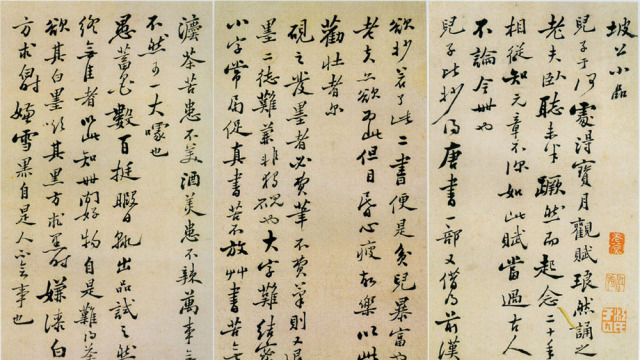 坡公小品
兒子于何處得寶月觀賦琅然誦之
老夫臥聽未半蹶然而起念二十年
相從知元章不深如此賦當過古人
不論今世也
兒子比抄得唐書一部又借得前漢
欲抄若了此二書便是貧兒暴富也
老夫亦欲為此但目昏心疲故樂以此
勸壯者爾
硯之發墨者必費筆不費筆則又退
墨二德難兼非獨硯也大字難結密
小字常局促真書苦不放艸書苦無
瀆茶苦患不美酒美患不辣萬事無
不然可一大噱也
愚蓄墨數百挺暇日輒出品試之然
終無佳者以此知世間好物自是難得茶
欲其白墨欲其黑方求黑時嫌漆白
方求白時嫌雪黑自是人不會事也